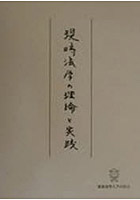 現時法学の理論と実践